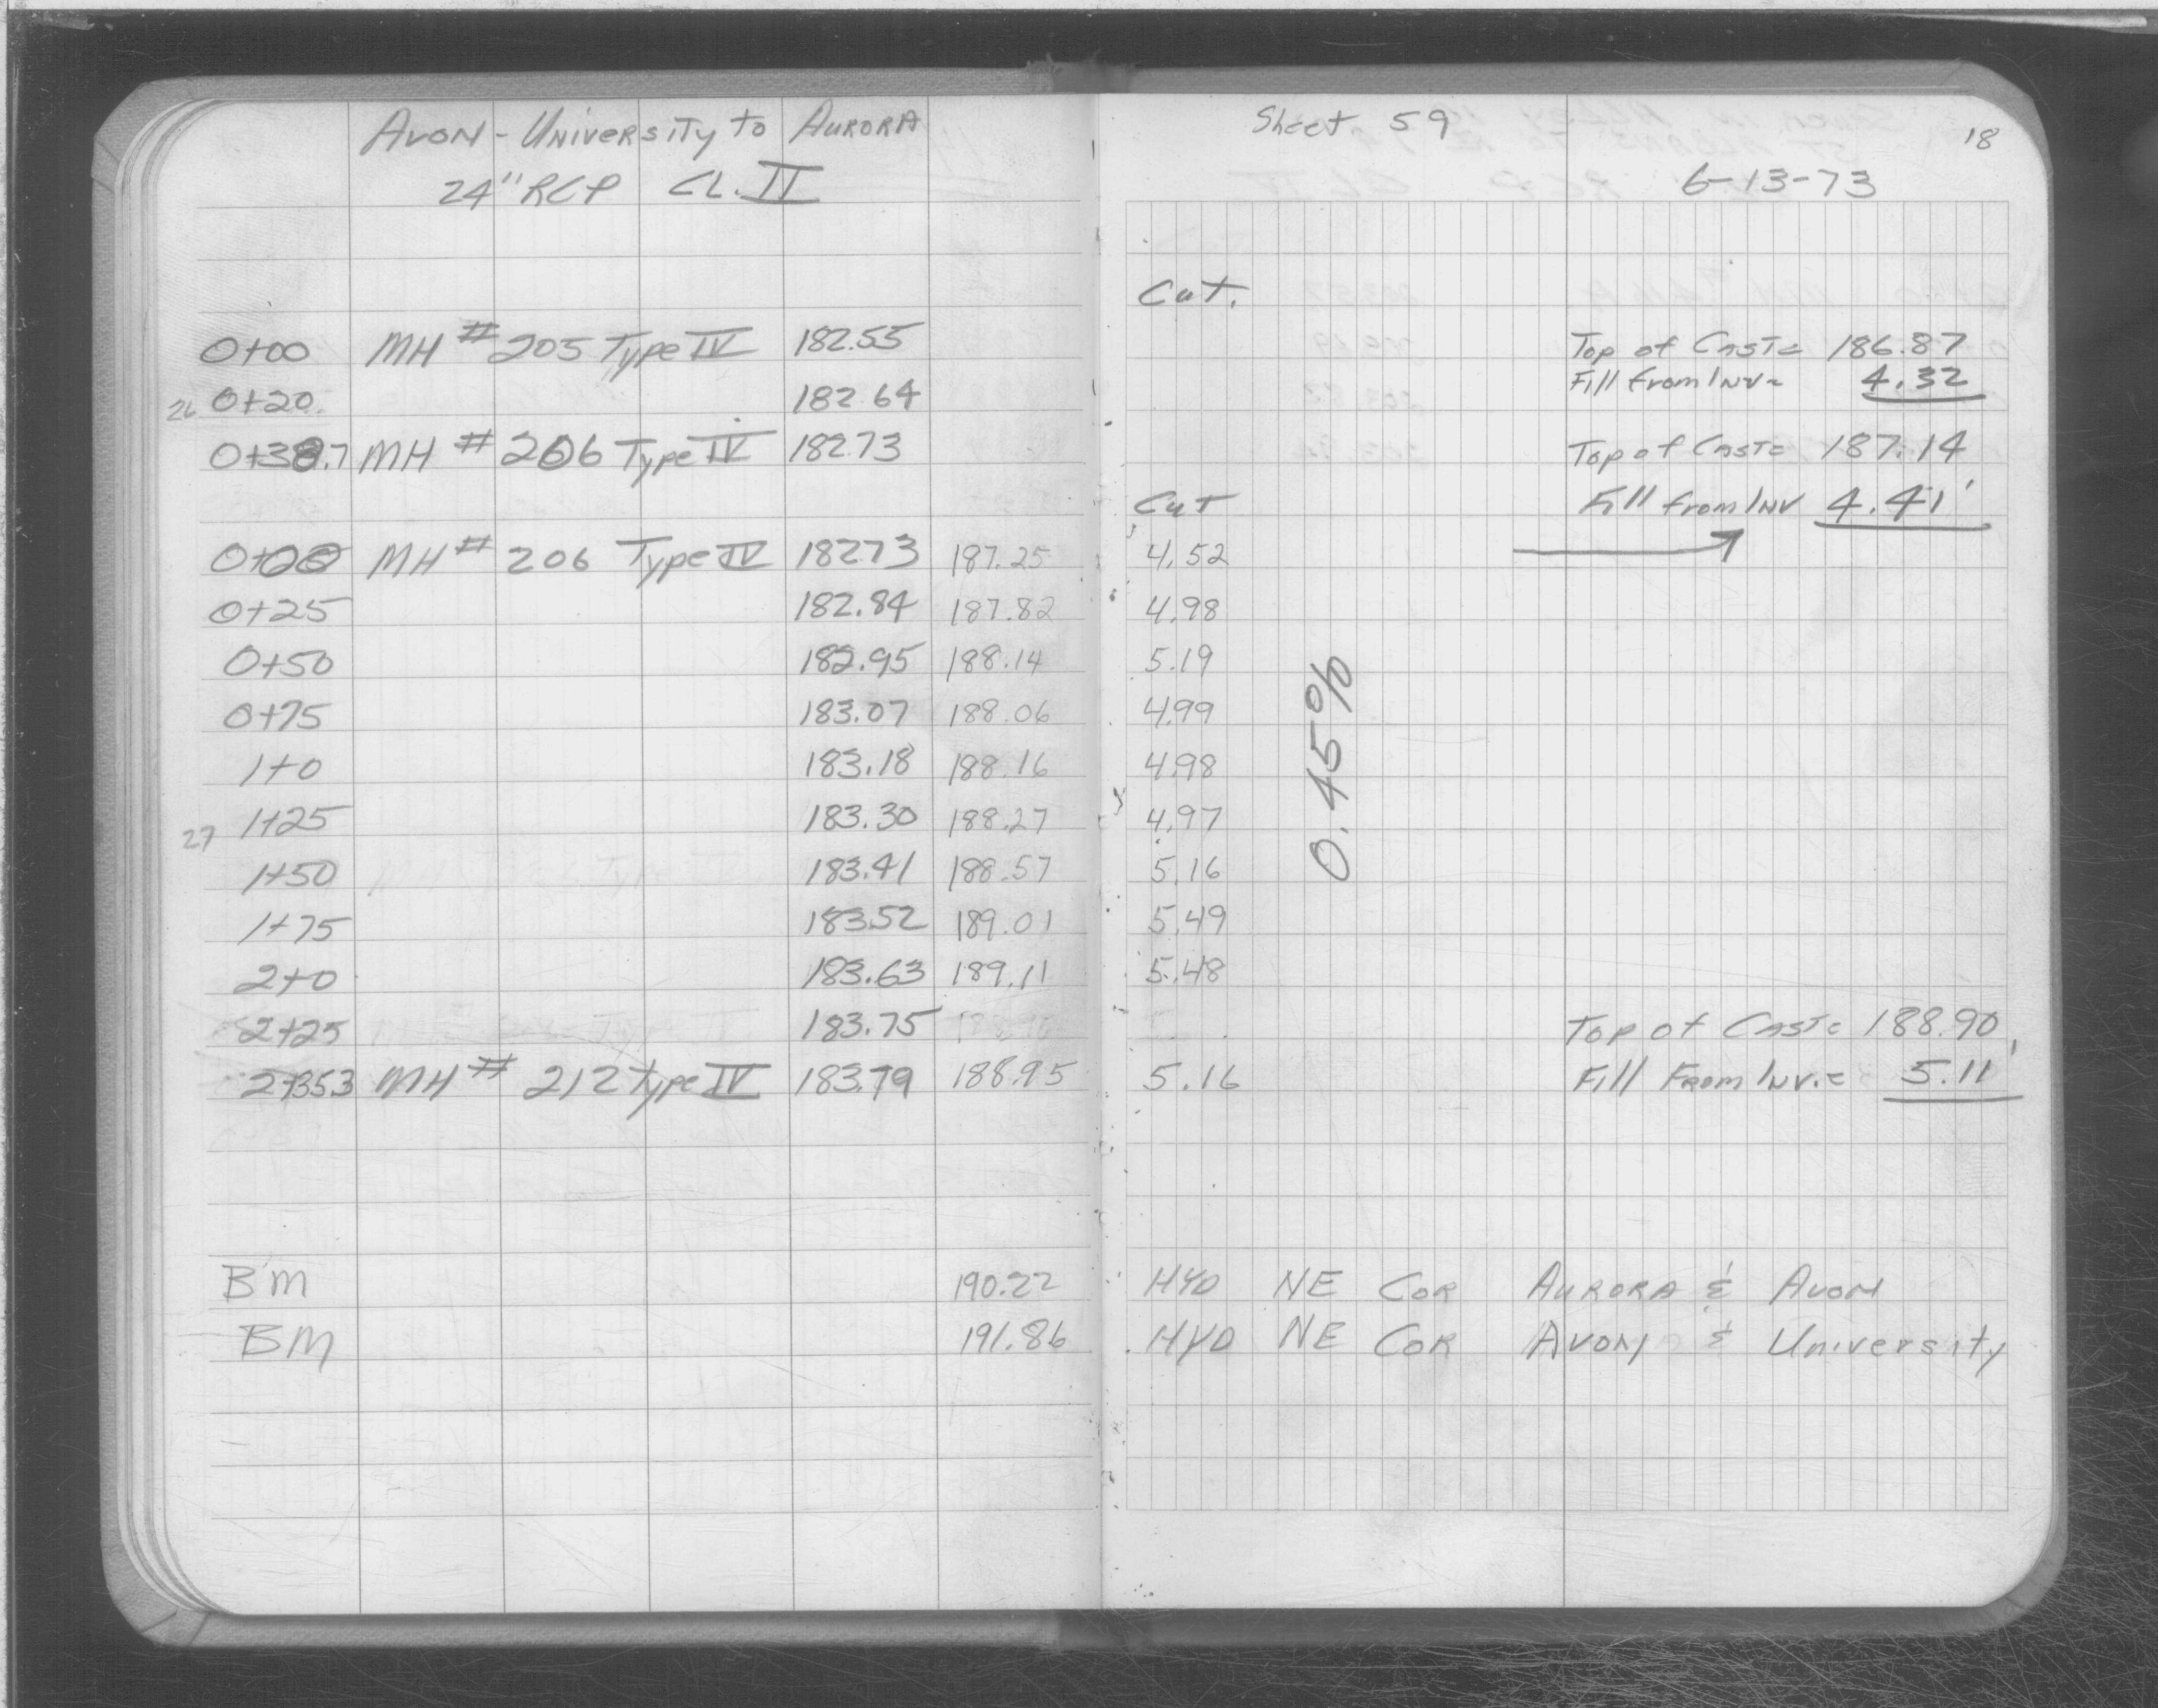 Avon - University to Aurora
24" RCP CL. II
Sheet 59
18
6-13-73
Cut.
0+00 MH # 205 Type IV 182.55 Top of Cast= 186.87
Fill from Inv= 4.32
26 0+20 182.64
0+38.7 MH # 206 Type IV 182.73 Top of Cast= 187.14
Cut Fill from Inv 4.41'
0+00 MH # 206 Type IV 182.73 187.25 4.52
0+25 182.84 187.82 4.98
0+50 182.95 188.14 5.19
0+75 183.07 188.06 4.99
1+0 183.18 188.16 4.98
27 1+25 183.30 188.27 4.97
1+50 183.41 188.57 5.16
1+75 183.52 189.01 5.49
2+0 183.63 189.11 5.48
2+25 183.75 Top of Cast= 188.90
2+35.3 MH # 212 type IV 183.79 188.95 5.16 Fill From Inv.= 5.11'
0.45%
BM 190.22 HYD NE Cor Aurora & Avon
BM 191.86 HYD NE Cor Avon & University